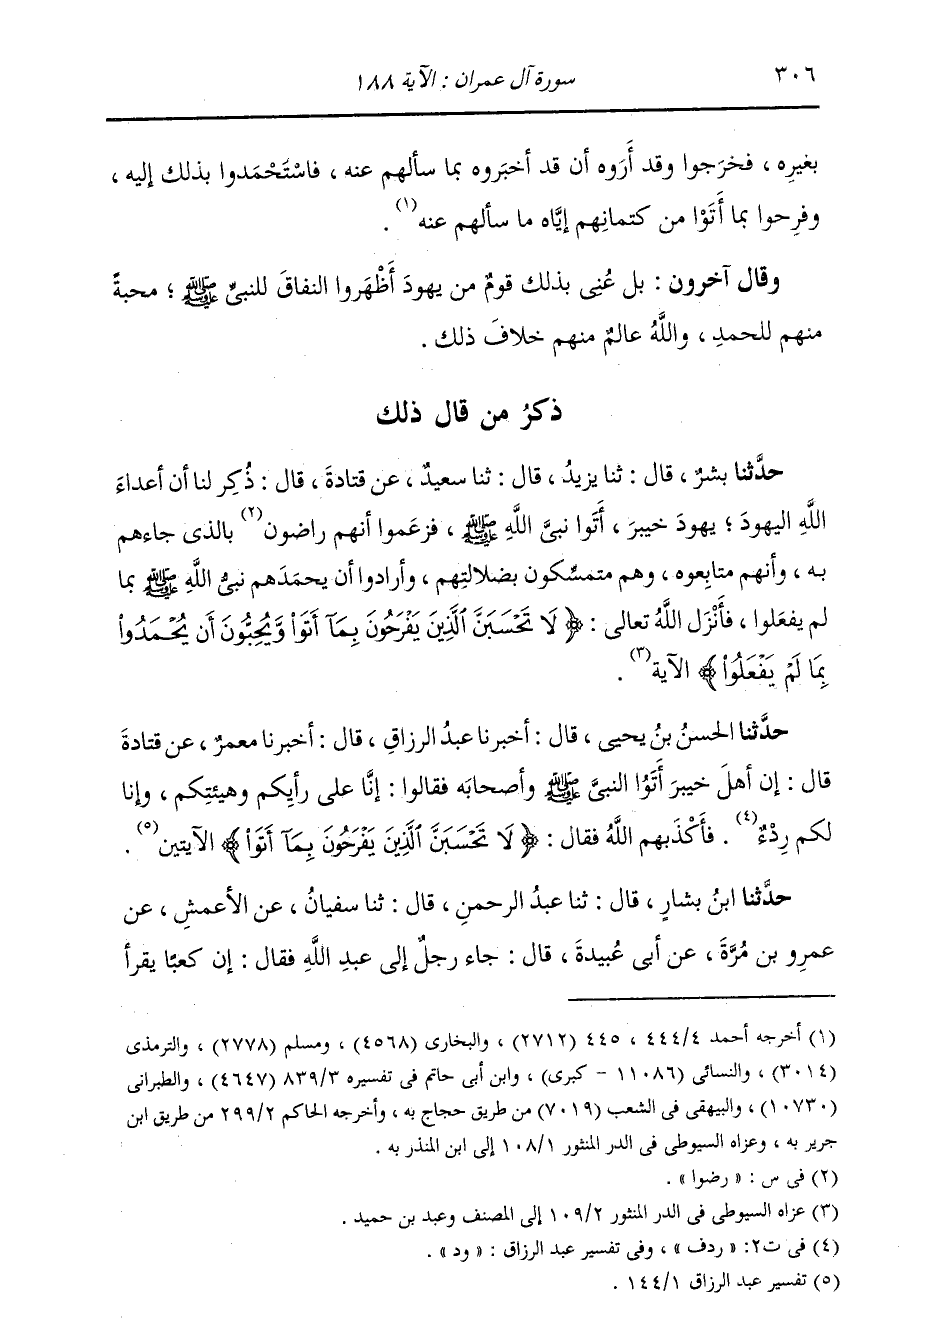 ٣٠٦ سورة آل عمران : الآية ١٨٨
بغيرِه ، فخرَجوا وقد أَرَوه أن قد أخبَروه بما سألهم عنه ، فاسْتَحْمَدوا بذلك إليه ،
وفرِحوا بما أَتَوْا من كتمانِهم إيَّاه ما سألهم عنه(١) .
وقال آخرون : بل عُنِى بذلك قومٌ من يهودَ أَظْهَروا النفاقَ للنبىِّ ﷺ ؛ محبةً
منهم للحمدِ ، واللَّهُ عالمٌ منهم خلافَ ذلك .
ذكرُ من قال ذلك
حدَّثنا بشرٌ ، قال : ثنا يزيدُ ، قال : ثنا سعيدٌ ، عن قتادةَ ، قال : ذُكِر لنا أن أعداءَ
اللَّهِ اليهودَ ؛ يهودَ خيبرَ ، أَتَوا نبىَّ اللَّهِ ﷺ ، فزعَموا أنهم راضون(٢) بالذى جاءهم
به ، وأنهم متابِعوه ، وهم متمسِّكون بضلالتِهم ، وأرادوا أن يحمَدَهم نبىُّ اللَّهِ ﷺ بما
لم يفعَلوا ، فأَنْزَل اللَّهُ تعالى : ﴿ لَا تَحْسَبَنَّ ٱلَّذِينَ يَفْرَحُونَ بِمَآ أَتَوا۟ وَّيُحِبُّونَ أَن يُحْمَدُوا۟
بِمَا لَمْ يَفْعَلُوا۟ ﴾ الآية(٣) .
حدَّثنا الحسنُ بنُ يحيى ، قال : أخبرنا عبدُ الرزاقِ ، قال : أخبرنا معمرٌ ، عن قتادةَ
قال : إن أهلَ خيبرَ أَتَوُا النبىَّ ﷺ وأصحابَه فقالوا : إنَّا على رأيِكم وهيئتِكم ، وإنا
لكم رِدْءٌ(٤) . فأَكْذَبهم اللَّهُ فقال : ﴿ لَا تَحْسَبَنَّ ٱلَّذِينَ يَفْرَحُونَ بِمَآ أَتَوا۟ ﴾ الآيتين(٥) .
حدَّثنا ابنُ بشارٍ ، قال : ثنا عبدُ الرحمنِ ، قال : ثنا سفيانُ ، عن الأعمشِ ، عن
عمرِو بن مُرَّةَ ، عن أبى عُبيدةَ ، قال : جاء رجلٌ إلى عبدِ اللَّهِ فقال : إن كعبًا يقرأ
(١) أخرجه أحمد ٤٤٤/٤ ، ٤٤٥ (٢٧١٢) ، والبخارى (٤٥٦٨) ، ومسلم (٢٧٧٨) ، والترمذى
(٣٠١٤) ، والنسائى (١١٠٨٦ - كبرى) ، وابن أبى حاتم فى تفسيره ٨٣٩/٣ (٤٦٤٧) ، والطبرانى
(١٠٧٣٠) ، والبيهقى فى الشعب (٧٠١٩) من طريق حجاج به ، وأخرجه الحاكم ٢٩٩/٢ من طريق ابن
جرير به ، وعزاه السيوطى فى الدر المنثور ١٠٨/١ إلى ابن المنذر به .
(٢) فى س : « رضوا » .
(٣) عزاه السيوطى فى الدر المنثور ١٠٩/٢ إلى المصنف وعبد بن حميد .
(٤) فى ت٢: « ردف » ، وفى تفسير عبد الرزاق : « ود » .
(٥) تفسير عبد الرزاق ١٤٤/١ .